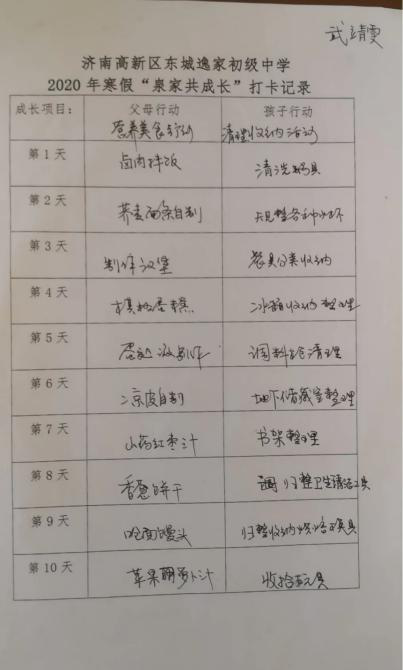 武靖雯
济南高新区东城逸家初级中学
2020年寒假“泉家共成长”打卡记录
成长项目： 父母行动 孩子行动
营养美食行动 清理收纳活动
第1天 卤肉拌饭 清洗厨具
第2天 荞麦面条自制 规整各种水杯
第3天 制作汉堡 餐具分类收纳
第4天 蛋糕 冰箱收纳整理
第5天 制作 调料台清理
第6天 凉皮自制 地下储藏室整理
第7天 山药红枣汁 书架整理
第8天 香葱饼干 归整卫生清洁工具
第9天 馒头 归整收纳
第10天 苹果胡萝卜汁 收拾玩具